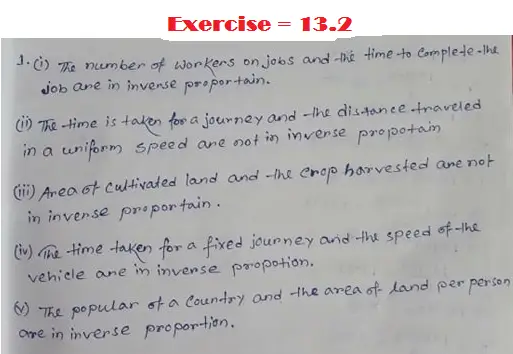 Exercise = 13.2
1. (i) The number of workers on jobs and the time to complete the
job are in inverse proportain.
(ii) The time is taken for a journey and the distance traveled
in a uniform speed are not in inverse propotain
(iii) Area of cultivated land and the crop harvested are not
in inverse proportain.
(iv) The time taken for a fixed journey and the speed of the
vehicle are in inverse propotion.
(v) The popular of a country and the area of land per person
are in inverse proportion.